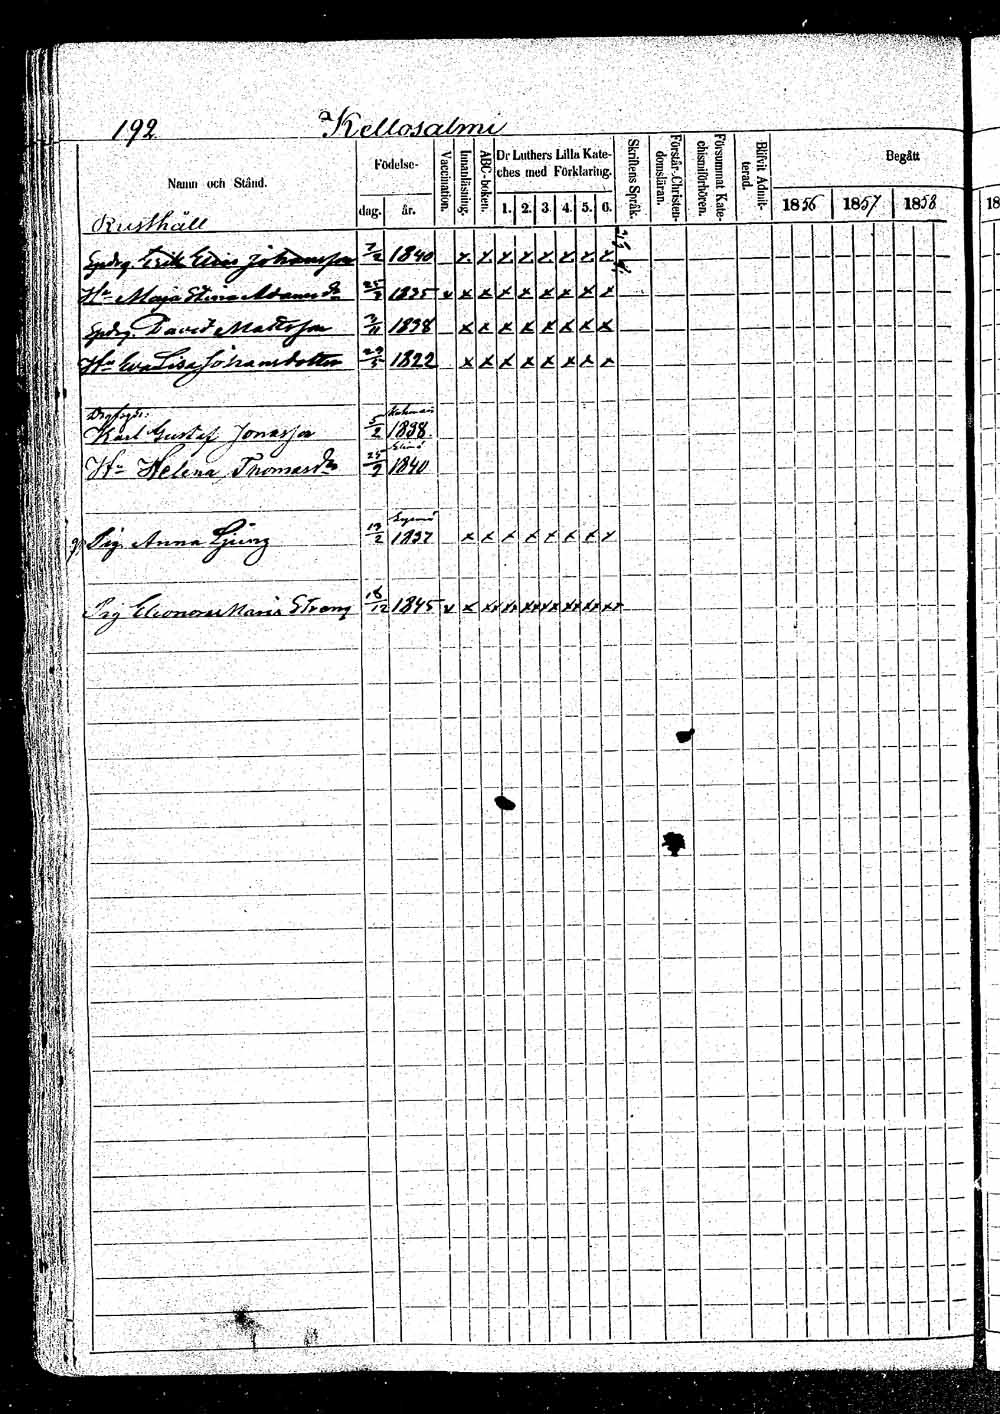 192 Kellosalmi
Namn och Stånd. Födelse- dag. år. Vaccination. Innanläsning. ABC-boken. Dr Luthers Lilla Kate-
ches med Förklaring. 1. 2. 3. 4. 5. 6. Skriftens Språk. Förstår Christen-
domsläran. Försummat Kate-
chismiförhören. Blifvit Admit-
terad. Begått
1856 1857 1858 18
Rusthåll
Johansson 7/2 1840 x x x x x x x x
Hu Maja Stina Adamsdr 25/2 1835 v x x x x x x x x
David Mattsson 3/11 1838 x x x x x x x x
Hu Eva Lisa Johansdotter 29/5 1822 x x x x x x x x
Karl Gustaf Jonasson 5/2 1838
Hu Helena Thomasdr 25/9 1840
Pig. Anna Ljung 19/2 1837 x x x x x x x x
Pig Eleonora Maria Streng 18/12 1845 v x xx xx xx xx xx xx xx